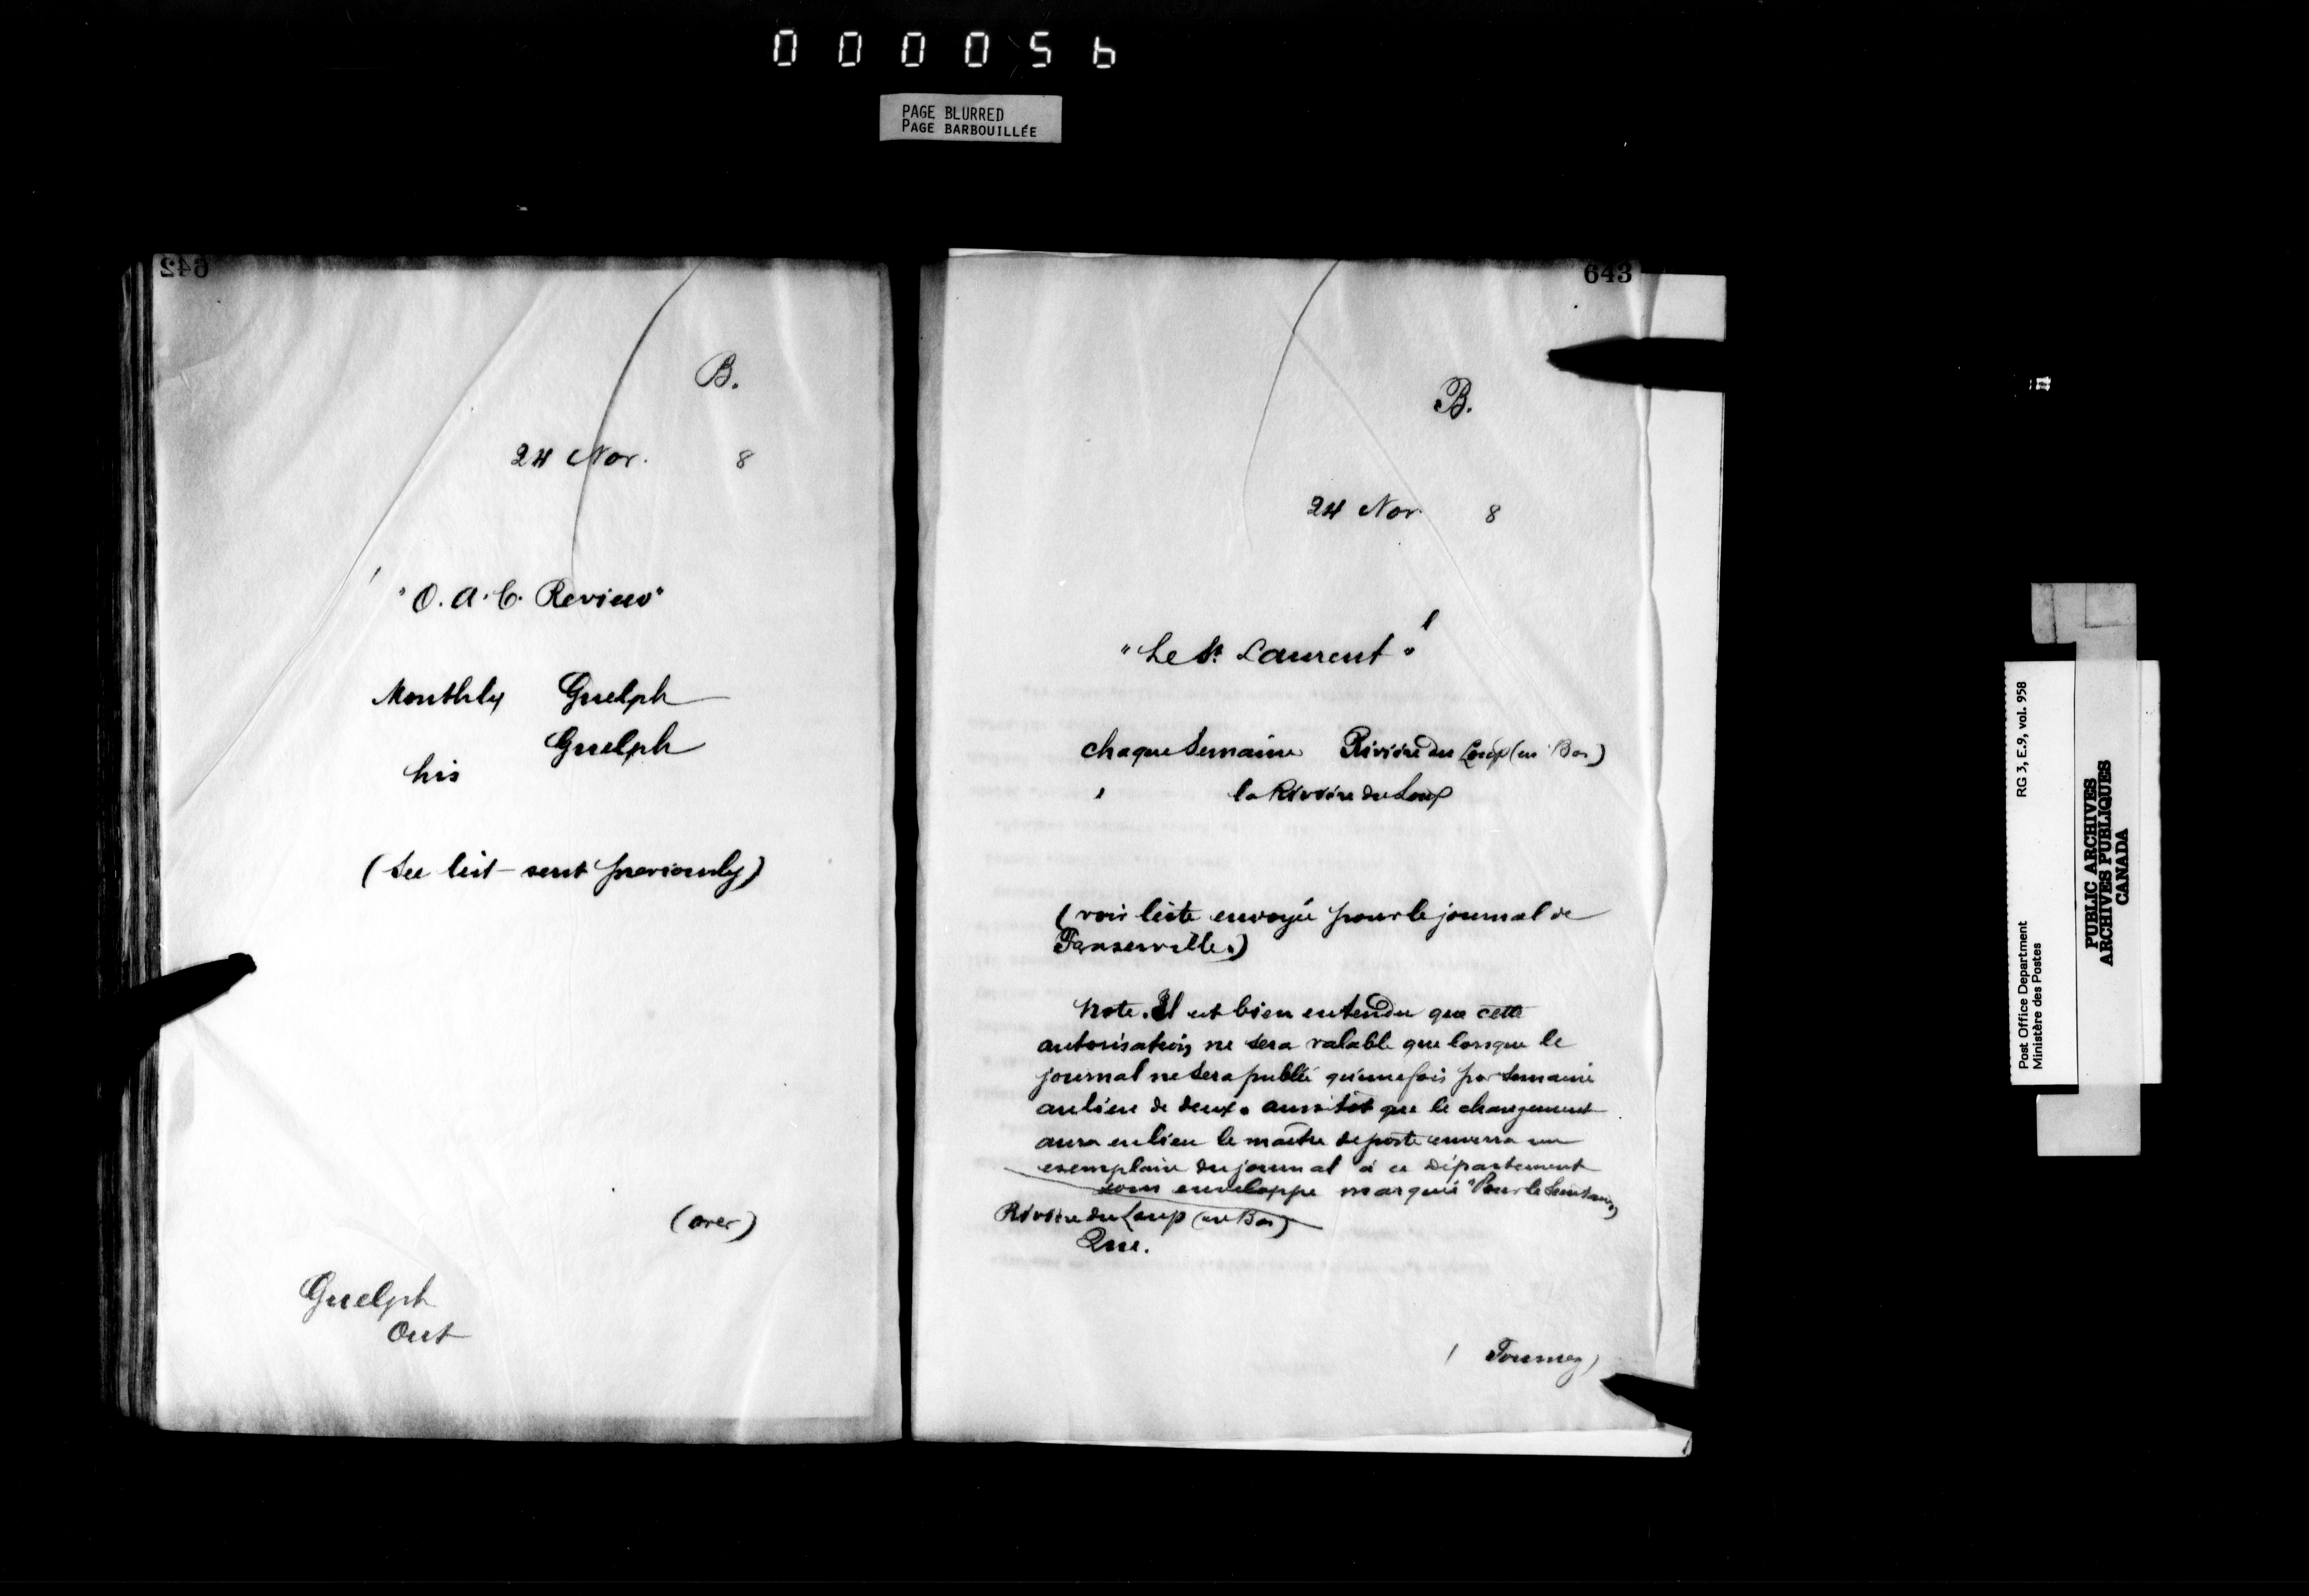 000056
PAGE BLURRED
PAGE BARBOUILLÉE
642
B.
24 Nov. 8
"O. A. C. Review"
Monthly Guelph
Guelph
his
(See list sent previously)
(over)
Guelph
Ont
643
B.
24 Nov. 8
"Le St. Laurent"
chaque semaine Rivière du Loup (en Bas)
la Rivière du Loup
(voir liste envoyée pour le journal de
Fraserville.)
Note. Il est bien entendu que cette
autorisation ne sera valable que lorsque le
journal ne sera publié qu'une fois par semaine
au lieu de deux. aussitôt que le changement
aura eu lieu le maître de poste enverra un
exemplaire du journal à ce Département
sous enveloppe marquée "Pour le
Rivière du Loup (en Bas)
Que.
Post Office Department RG 3, E.9, vol. 958
Ministère des Postes
PUBLIC ARCHIVES
ARCHIVES PUBLIQUES
CANADA